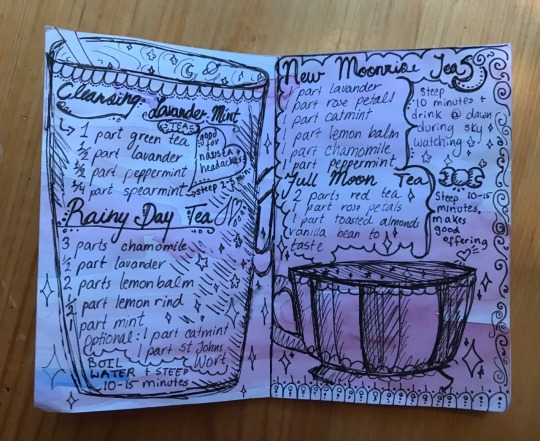 Cleansing Lavender Mint
TEA
1 part green tea
1/2 part lavender
1/2 part peppermint
1/4 part spearmint
good
for
nausea +
headaches
steep 2-5 min
Rainy Day Tea
3 parts chamomile
1/2 part lavender
2 parts lemon balm
1/2 part lemon rind
1 part mint
optional: 1 part catmint
1 part st Johns
Wort
BOIL
WATER + STEEP
10-15 minutes
New Moonrise Teas
1 part lavender
1 part rose petals
1 part catmint
1 part lemon balm
1 part chamomile
1 part peppermint
Steep
10 minutes +
drink @ dawn
during sky
watching
Full Moon Tea
2 parts red tea
1 part rose petals
1 part toasted almonds
vanilla bean to
taste
Steep 10-15
minutes,
makes
good
offering